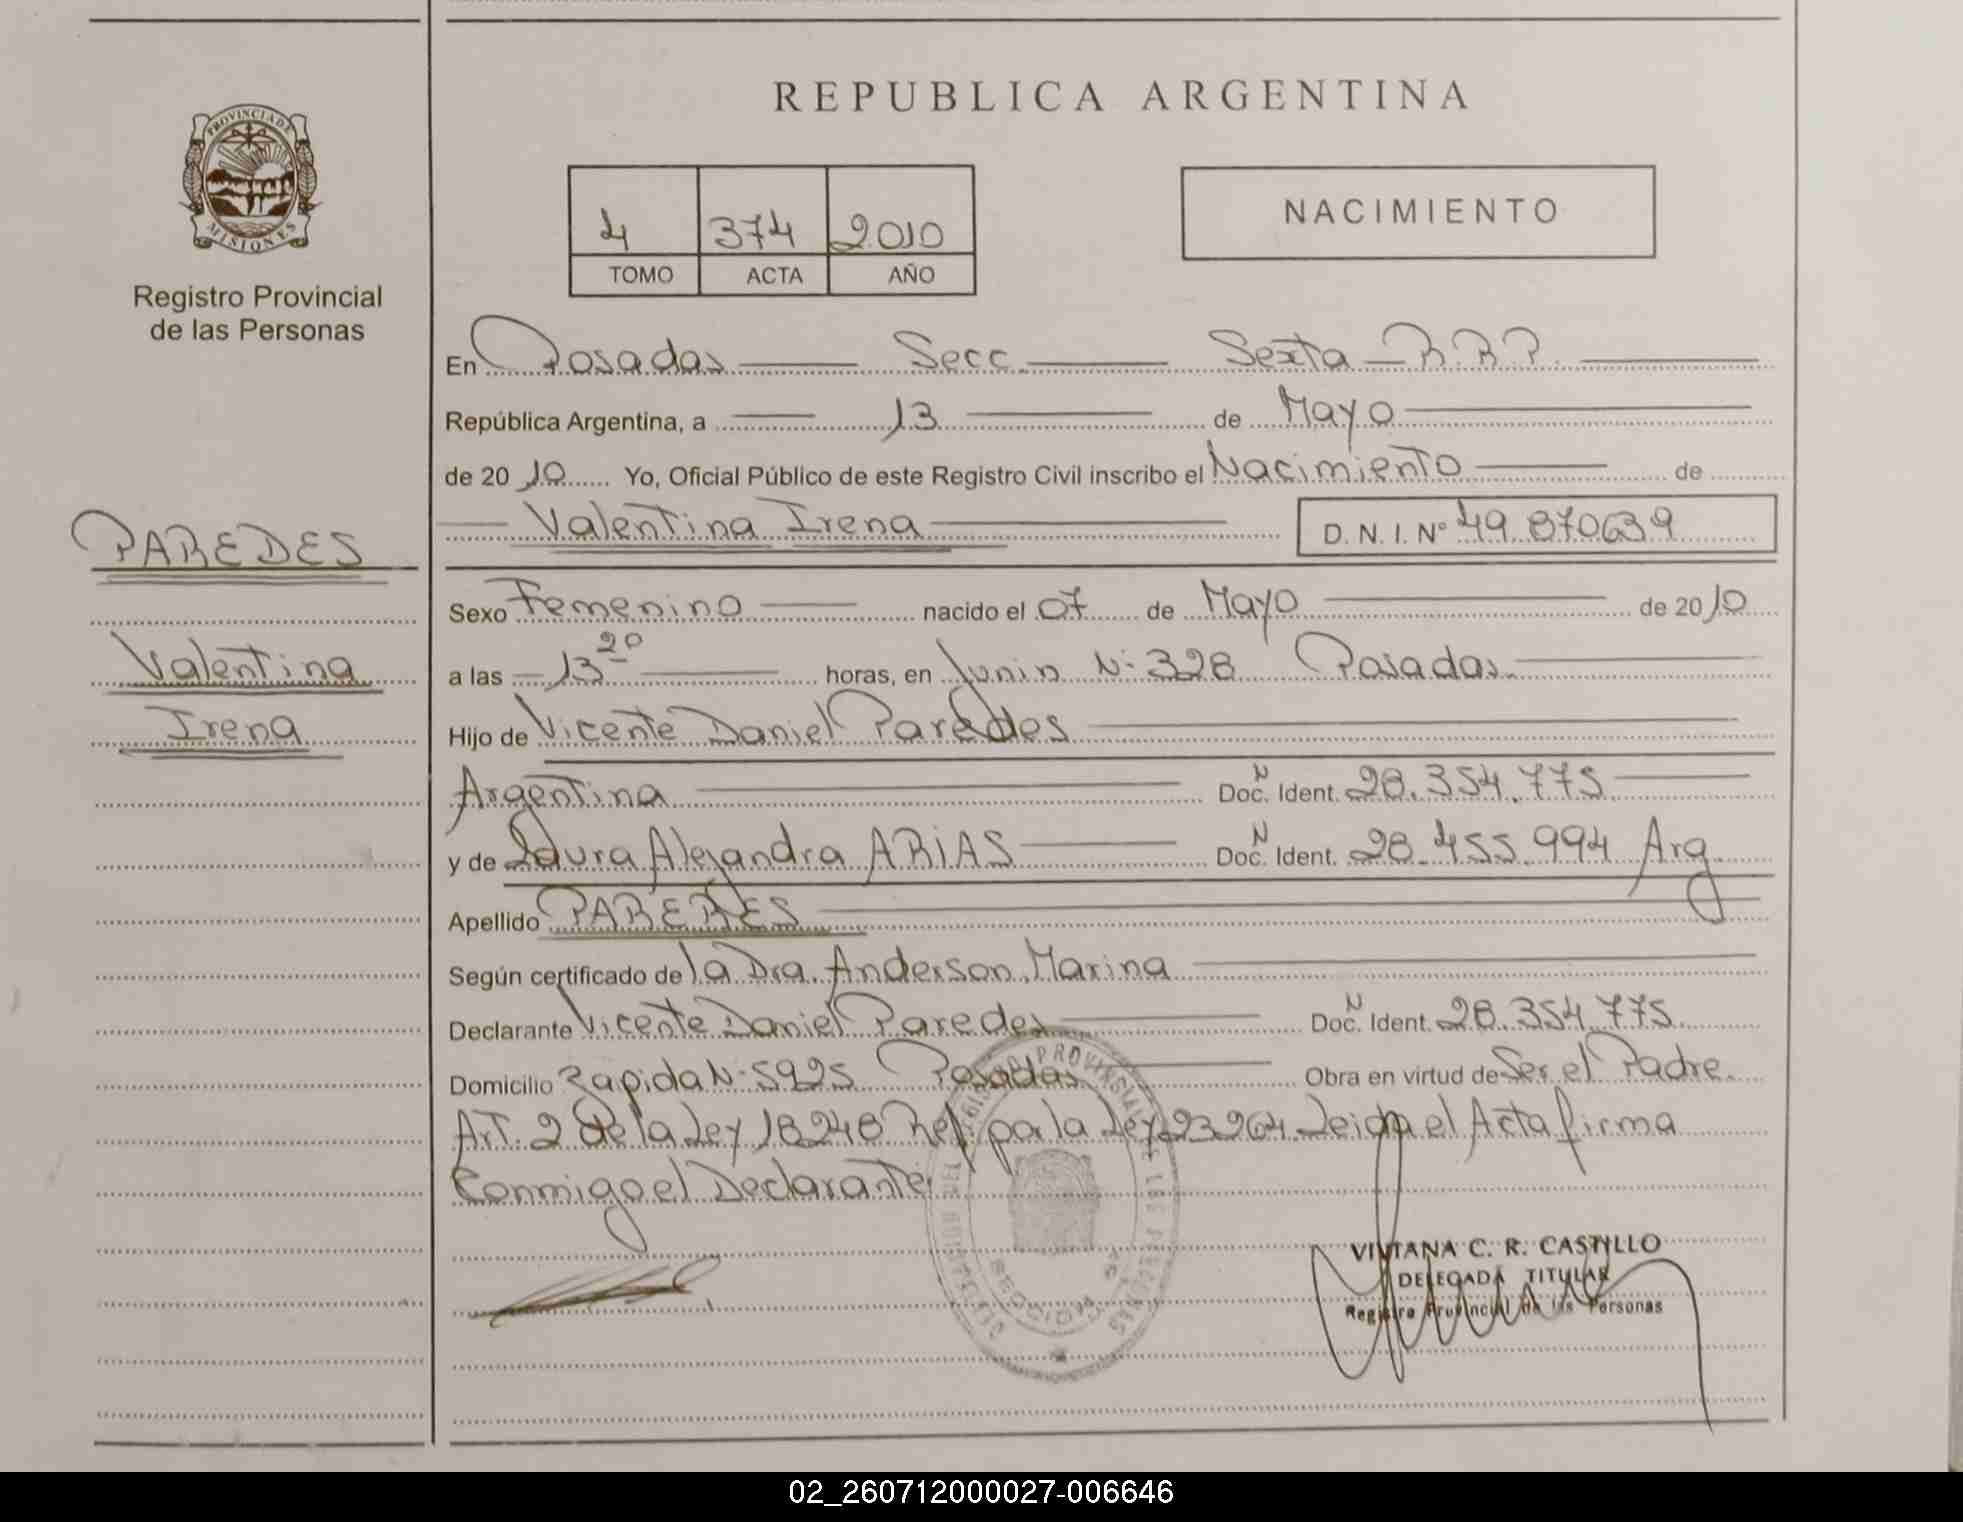 PROVINCIA DE
MISIONES
Registro Provincial
de las Personas
PAREDES
Valentina
Irena
REPUBLICA ARGENTINA
4 374 2010
TOMO ACTA AÑO
NACIMIENTO
En Posadas Secc. Sexta R.R.P.
República Argentina, a 13 de Mayo
de 20 10 Yo, Oficial Público de este Registro Civil inscribo el Nacimiento de
Valentina Irena D. N. I. Nº 49.870639
Sexo Femenino nacido el 07 de Mayo de 20 10
a las 13 20 horas, en Junin Nº 328 Posadas
Hijo de Vicente Daniel Paredes
Argentina Doc. N Ident. 28.354.775
y de Laura Alejandra ARIAS Doc. N Ident. 28.455.994 Arg
Apellido PAREDES
Según certificado de la Dra. Anderson, Marina
Declarante Vicente Daniel Paredes Doc. N Ident. 28.354.775
Domicilio Zapida Nº 5925 Posadas Obra en virtud de Ser el Padre.
Art. 2 de la Ley 18248 Ref. por la Ley 23264. Leida el Acta firma
Conmigo el Declarante
VIVIANA C. R. CASTILLO
DELEGADA TITULAR
Registro Provincial de las Personas
02_260712000027-006646